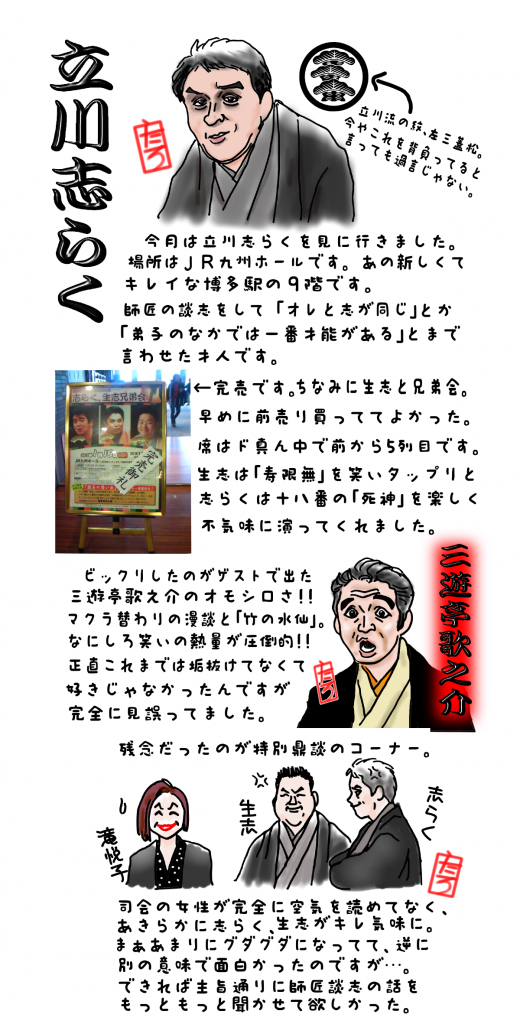 立川志らく
たつ
立川流の紋、左三蓋松。
今やこれを背負ってると
言っても過言じゃない。
今月は立川志らくを見に行きました。
場所はJR九州ホールです。あの新しくて
キレイな博多駅の9階です。
師匠の談志をして「オレと志が同じ」とか
「弟子のなかでは一番才能がある」とまで
言わせた才人です。
志らく、生志兄弟会
完売御礼
←完売です。ちなみに生志と兄弟会。
早めに前売り買っててよかった。
席はド真ん中で前から5列目です。
生志は「寿限無」を笑いタップリと
志らくは十八番の「死神」を楽しく
不気味に演ってくれました。
三遊亭歌之介
ビックリしたのがゲストで出た
三遊亭歌之介のオモシロさ!!
マクラ替わりの漫談と「竹の水仙」。
なにしろ笑いの熱量が圧倒的!!
正直これまでは垢抜けてなくて
好きじゃなかったんですが
完全に見誤ってました。
たつ
残念だったのが特別鼎談のコーナー。
滝悦子
生志
志らく
たつ
司会の女性が完全に空気を読めてなく、
あきらかに志らく、生志がキレ気味に。
まぁあまりにグダグダになってて、逆に
別の意味で面白かったのですが…。
できれば主旨通りに師匠談志の話を
もっともっと聞かせて欲しかった。